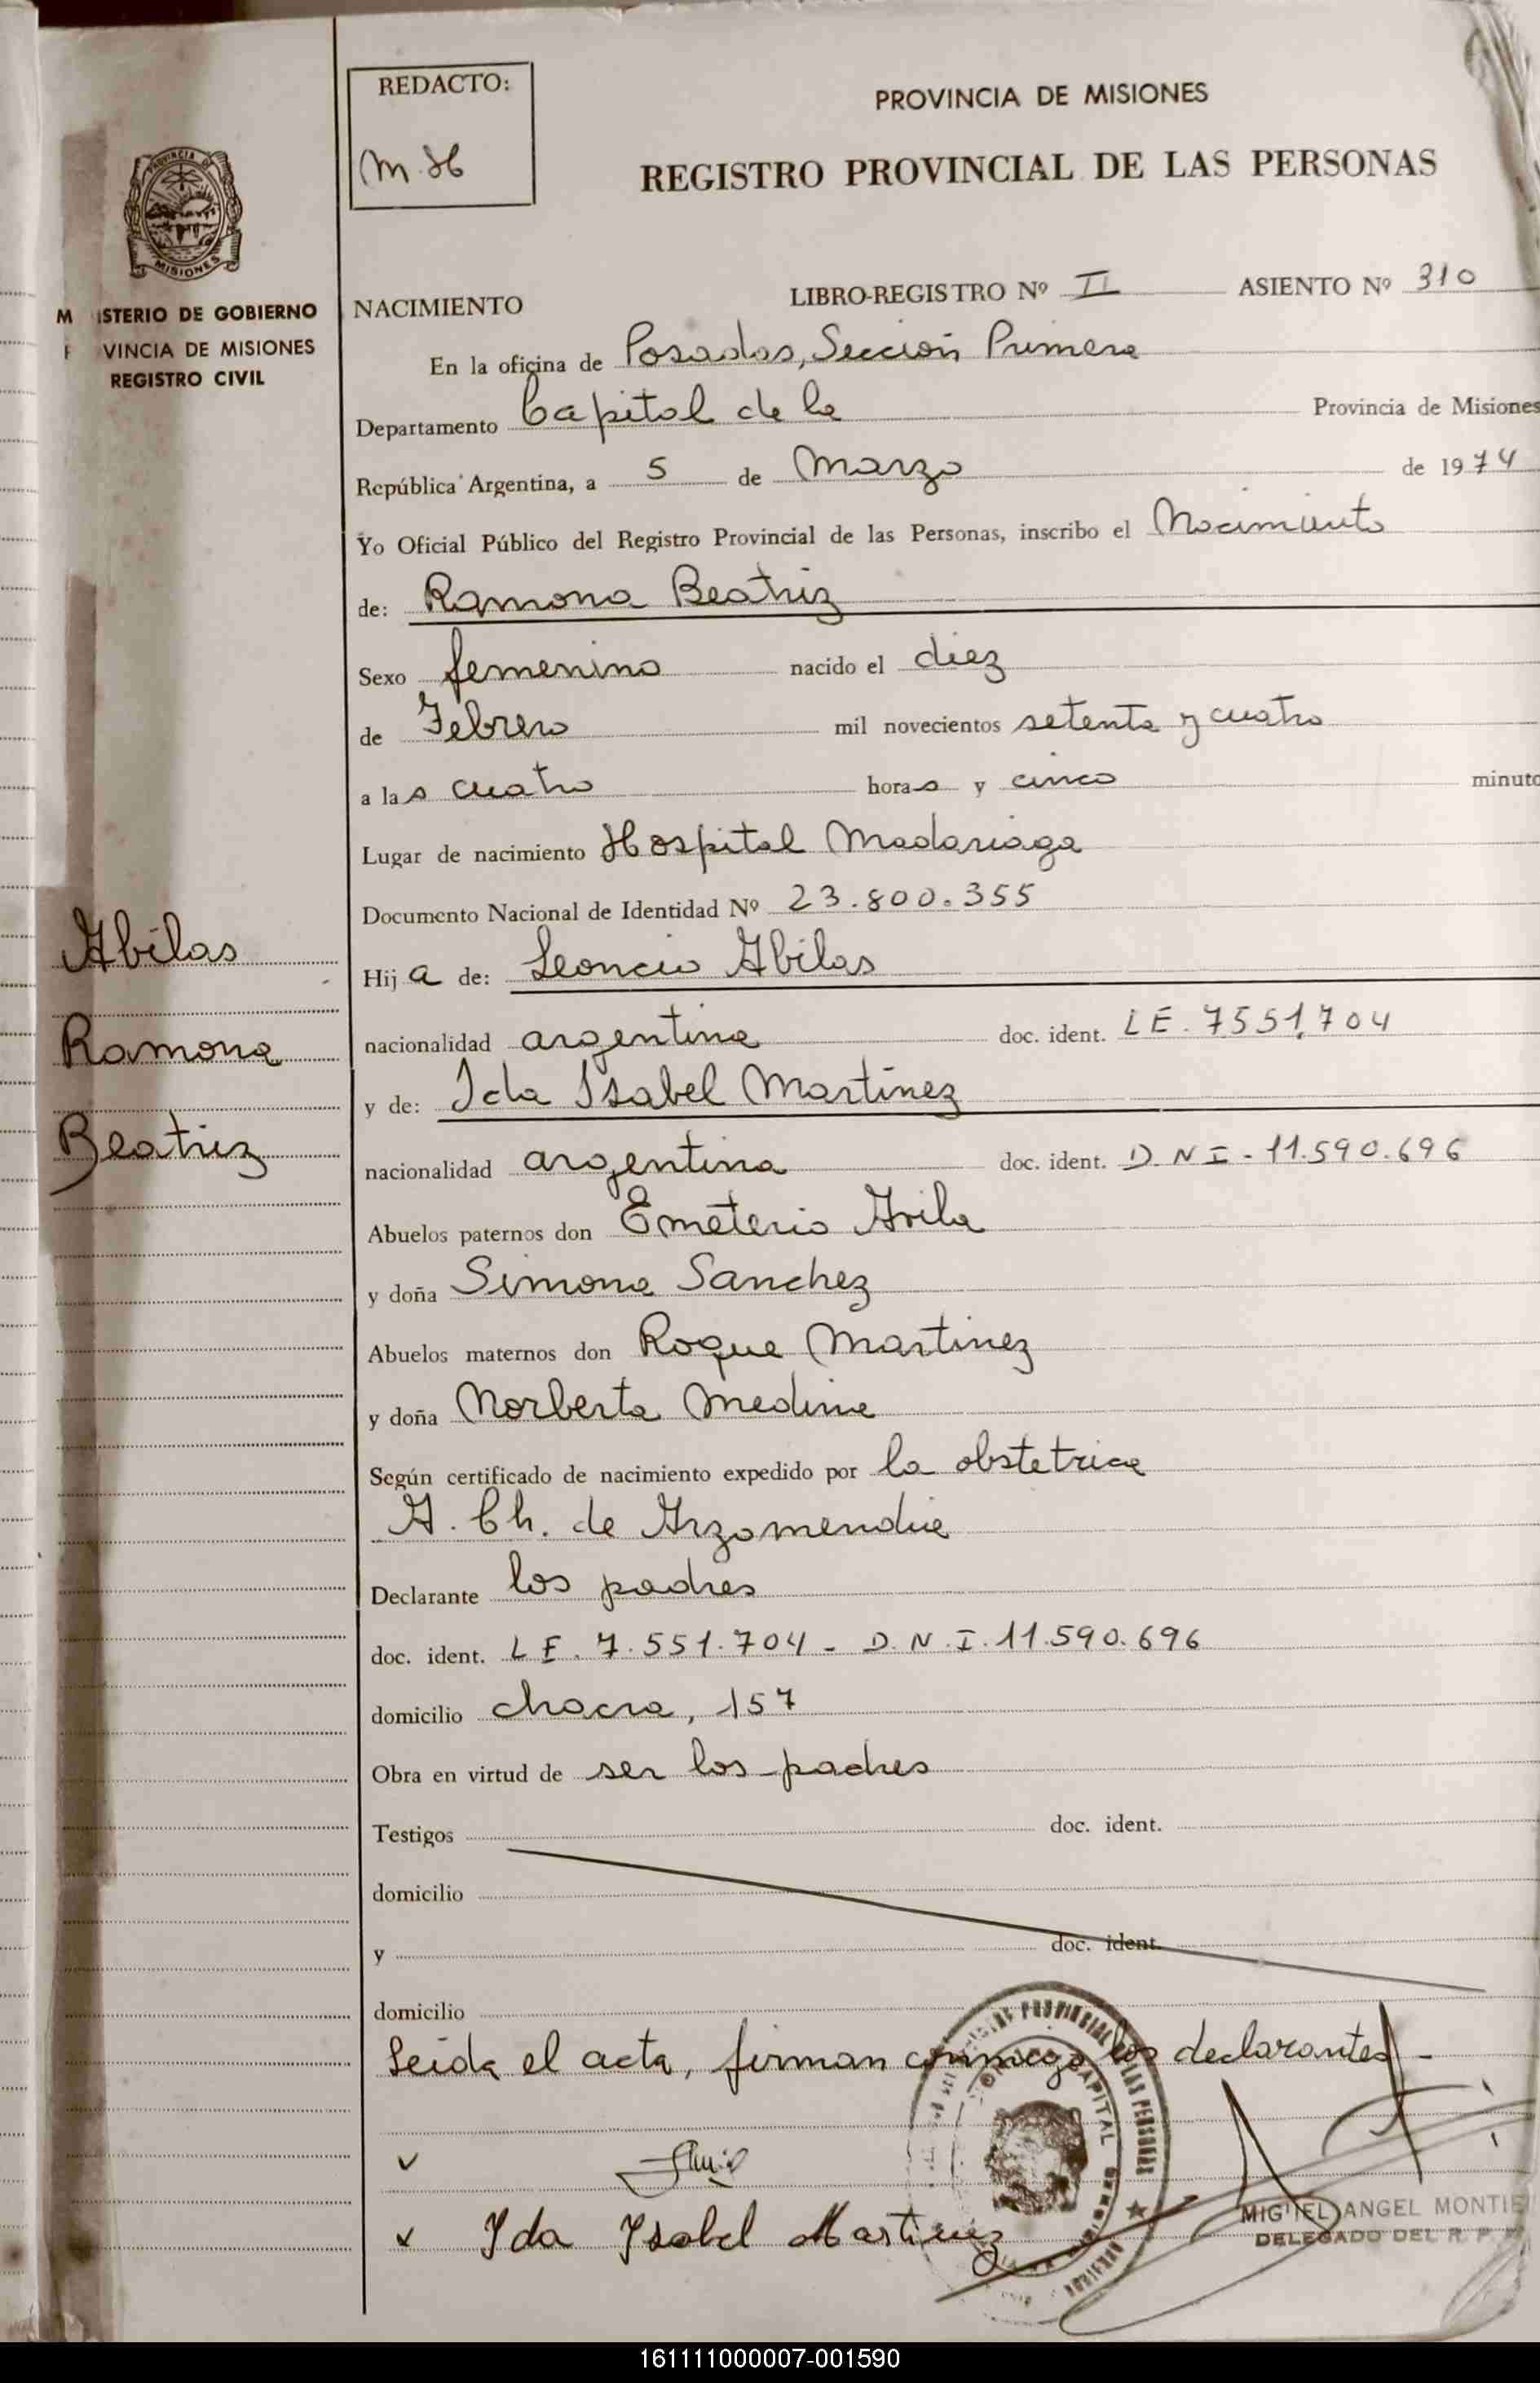 REDACTO:
M.H
PROVINCIA DE MISIONES
REGISTRO PROVINCIAL DE LAS PERSONAS
PROVINCIA DE
MISIONES
M ISTERIO DE GOBIERNO
P VINCIA DE MISIONES
REGISTRO CIVIL
NACIMIENTO
LIBRO-REGISTRO Nº II ASIENTO Nº 310
En la oficina de Posadas, Sección Primera
Departamento Capital de la Provincia de Misiones
República Argentina, a 5 de Marzo de 1974
Yo Oficial Público del Registro Provincial de las Personas, inscribo el Nacimiento
de: Ramona Beatriz
Sexo femenino nacido el diez
de Febrero mil novecientos setenta y cuatro
a las cuatro horas y cinco minuto
Lugar de nacimiento Hospital Madariaga
Documento Nacional de Identidad Nº 23.800.355
Abilas
Ramona
Beatriz
Hija de: Leoncio Abilas
nacionalidad argentina doc. ident. LE. 7551.704
y de: Ida Isabel Martínez
nacionalidad argentina doc. ident. D.N.I - 11.590.696
Abuelos paternos don Emeterio Avila
y doña Simona Sanchez
Abuelos maternos don Roque Martinez
y doña Norberta Medina
Según certificado de nacimiento expedido por la obstetrica
A. Ch. de Arzamendia
Declarante los padres
doc. ident. L E. 7.551.704 - D.N.I. 11.590.696
domicilio chacra, 157
Obra en virtud de ser los padres
Testigos doc. ident.
domicilio
y doc. ident.
domicilio
Leida el acta, firman conmigo los declarantes -
Ida Isabel Martinez
PROVINCIAL LAS PERSONAS
CAPITAL
MIGUEL ANGEL MONTIE
DELEGADO DEL R. P.
161111000007-001590